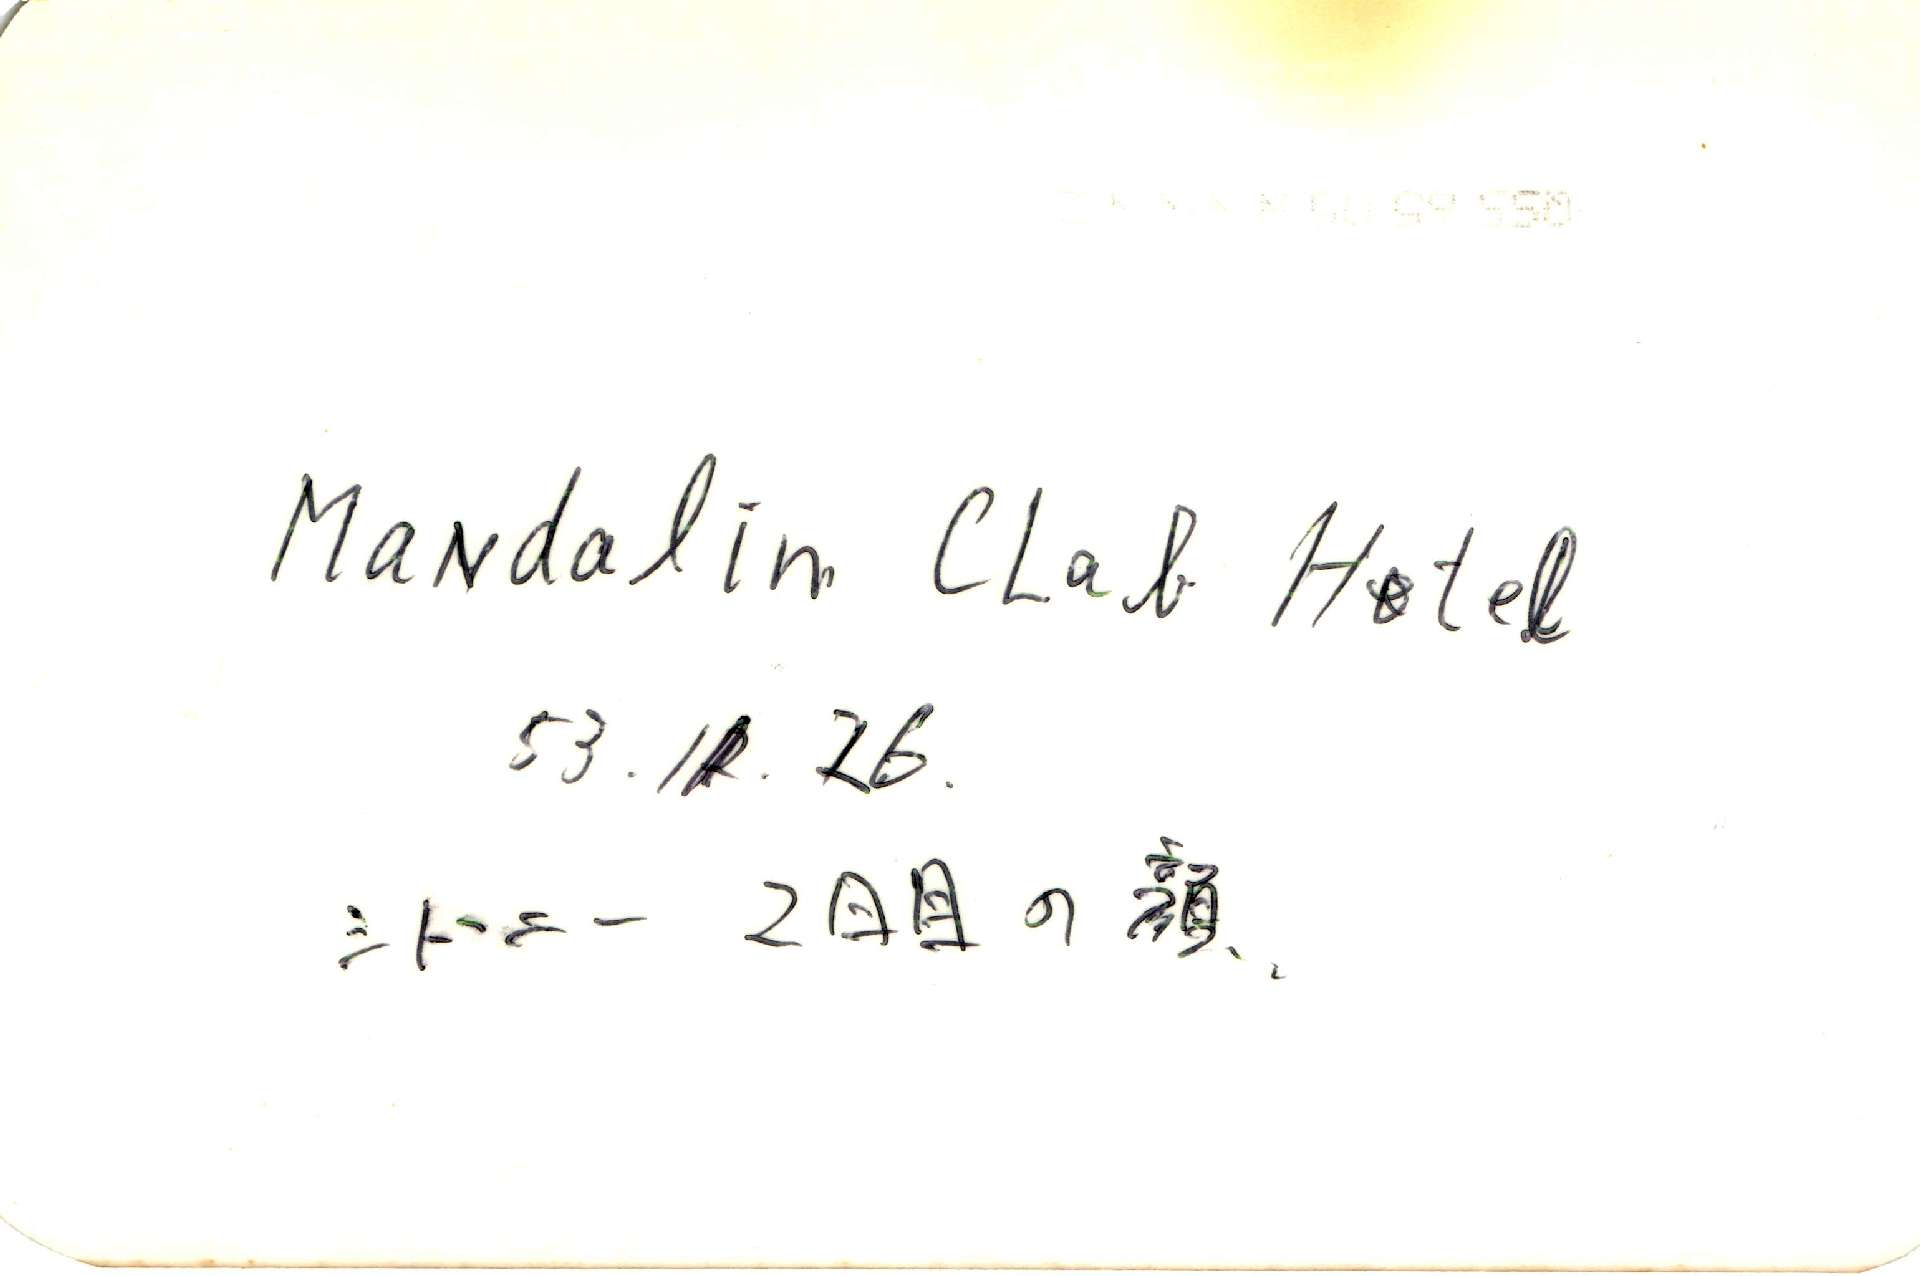 Mandalin CLab Hotel
53.12.26.
シドニー 2日目の顔、